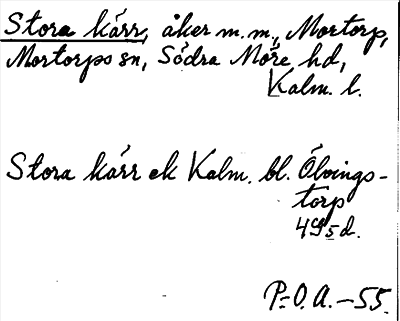 Stora kärr, åker m.m., Mortorp,
Mortorps sn, Södra Möre hd,
Kalm. l.
Stora kärr ek Kalm. bl. Ölvings-
torp
4G5d.
P.O.A.-55.